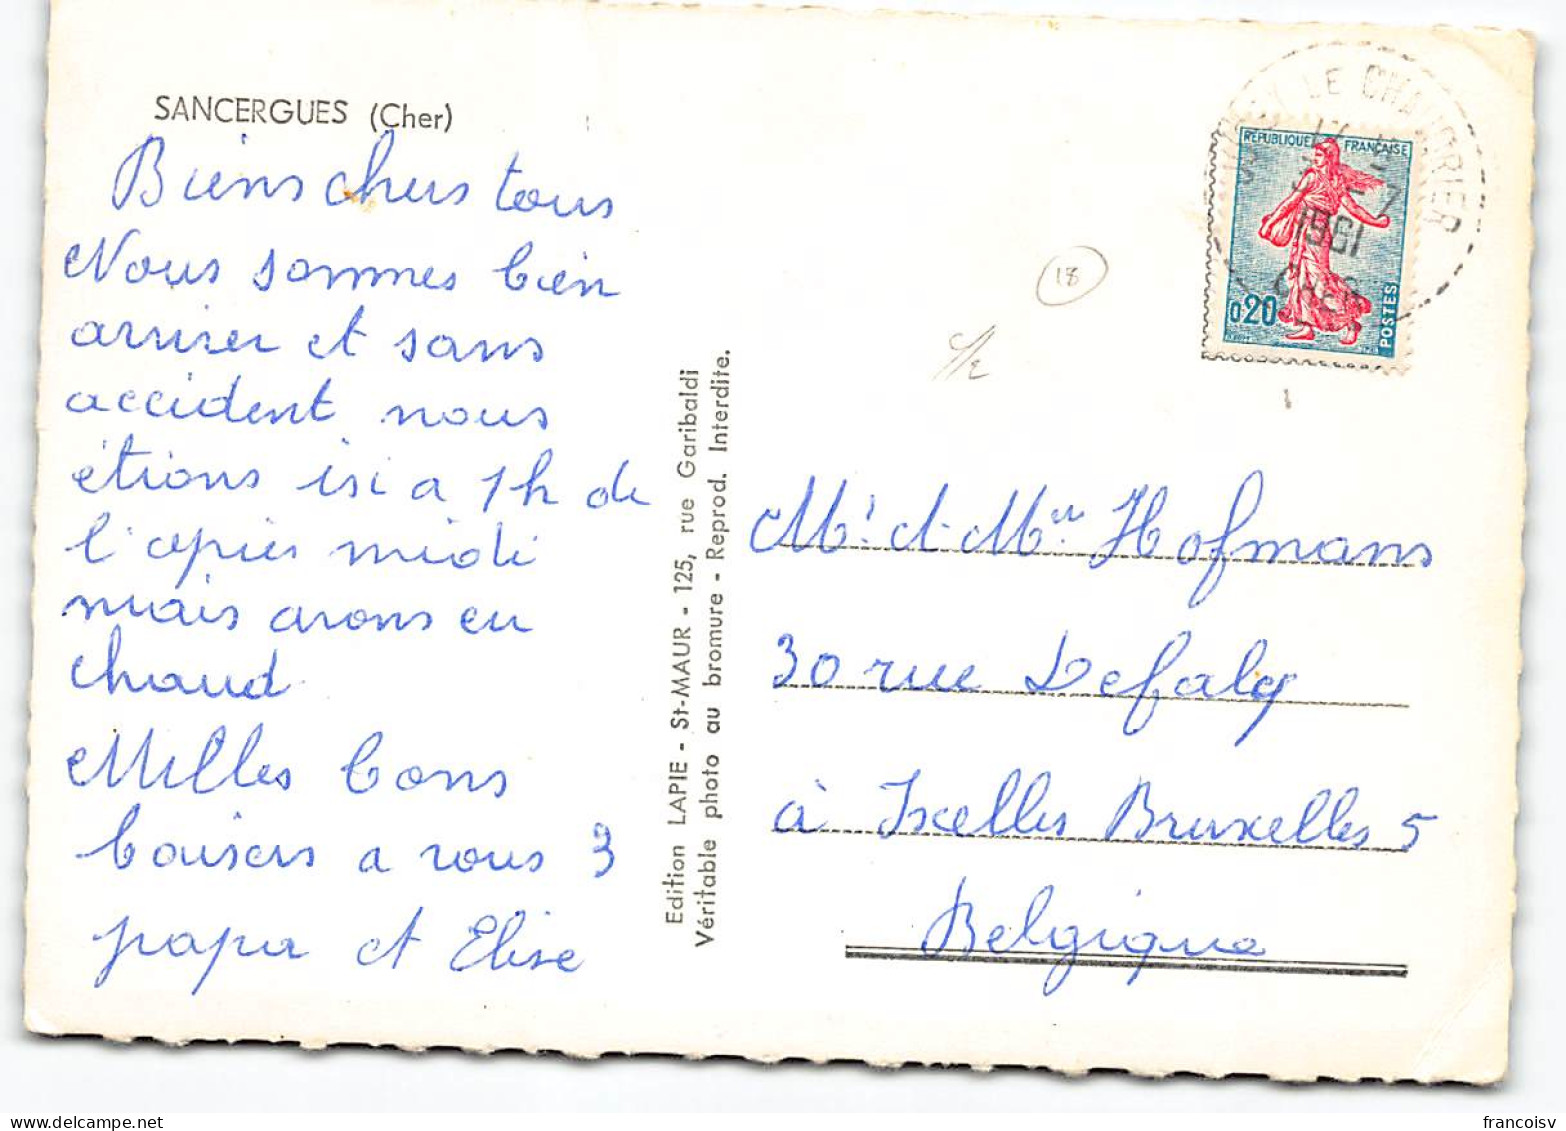 SANCERGUES (Cher)
Biens chers tous
Nous sommes bien
arriver et sans
accident nous
étions isi a 1h de
l'apies midi
mais avons eu
chaud
Milles bons
baisers a vous 3
papa et Elise
Edition LAPIE - St-MAUR - 125, rue Garibaldi
Véritable photo au bromure - Reprod. Interdite.
18
REPUBLIQUE FRANÇAISE
0,20
POSTES
LE CHAUTRIER
1961
CHER
Mr. et Mme Hofmans
30 rue Defalq
à Ixelles Bruxelles 5
Belgique
francoisv